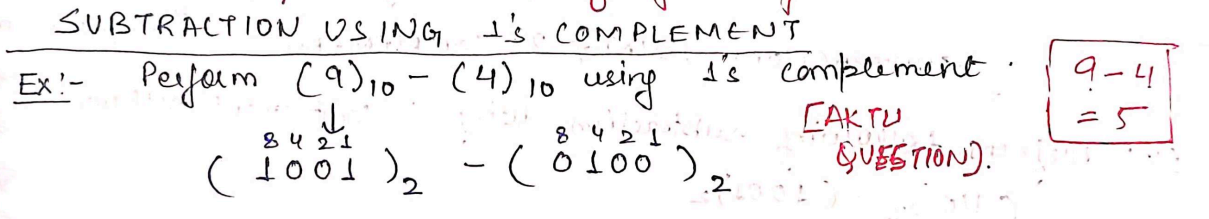 SUBTRACTION USING 1's COMPLEMENT
Ex:- Perform (9)10 - (4)10 using 1's complement.
9-4
= 5
[AKTU
QUESTION].
8 4 2 1
8 4 2 1
(1001)2 - (0100)2